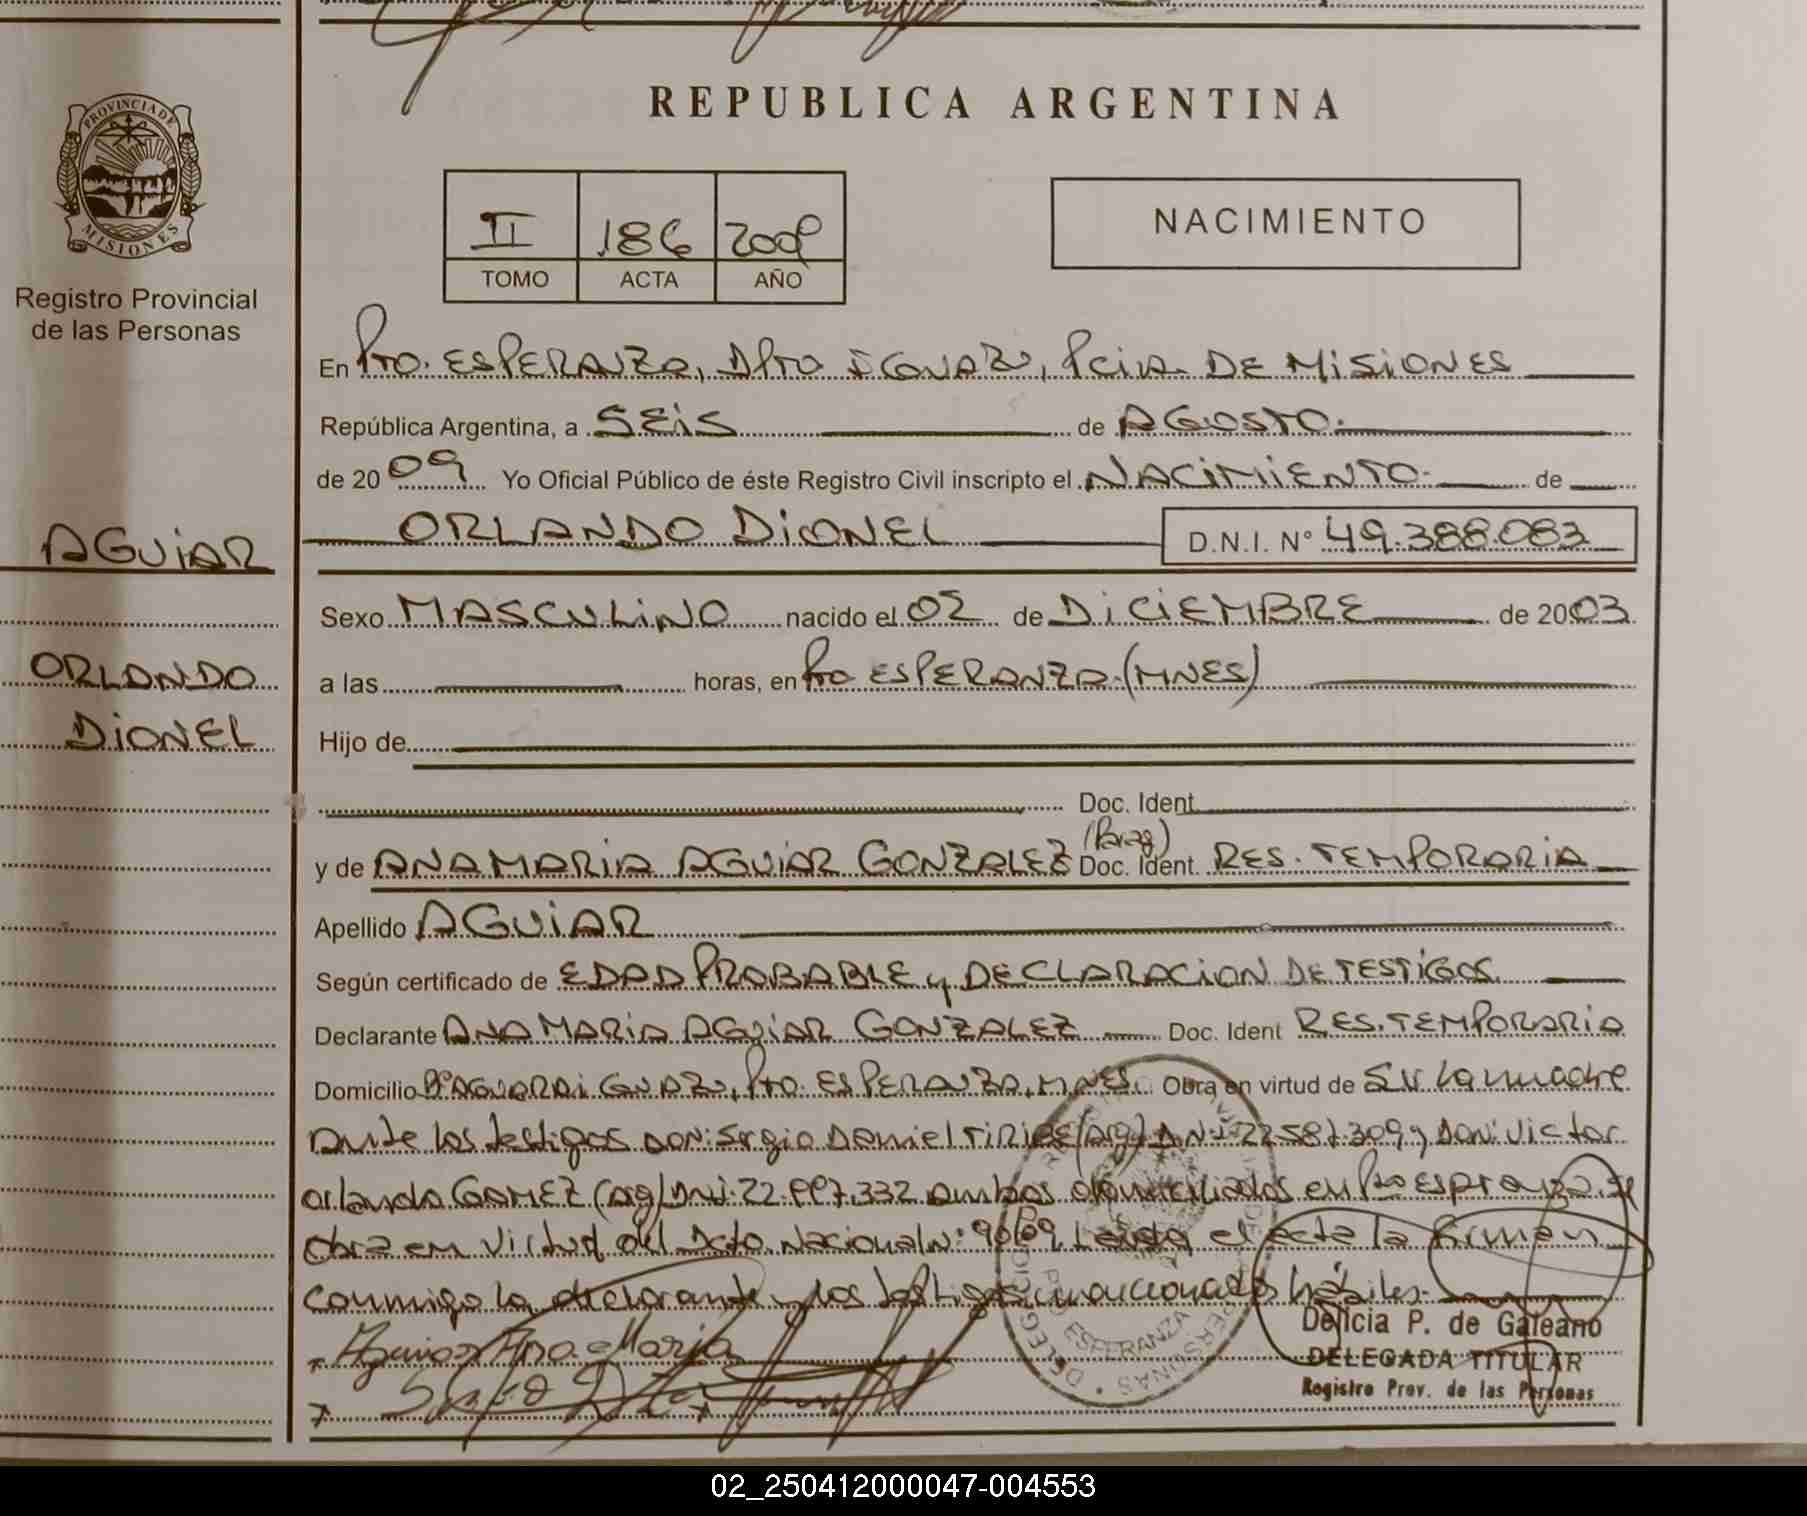 REPUBLICA ARGENTINA
PROVINCIA DE
MISIONES
Registro Provincial
de las Personas
II 186 2009
TOMO ACTA AÑO
NACIMIENTO
En Pto. ESPERANZA, DPto IGUAZU, Pcia. DE MISIONES
República Argentina, a SEIS de AGOSTO.
de 2009 Yo Oficial Público de éste Registro Civil inscripto el NACIMIENTO. de
ORLANDO DIONEL D.N.I. N° 49.388.083
AGUIAR
ORLANDO
DIONEL
Sexo MASCULINO nacido el 02 de DICIEMBRE de 2003
a las horas, en Pto ESPERANZA.(MNES)
Hijo de
Doc. Ident.
y de ANA MARIA AGUIAR GONZALEZ (Parag) Doc. Ident. RES. TEMPORARIA
Apellido AGUIAR
Según certificado de EDAD PROBABLE y DECLARACION DE TESTIGOS
Declarante ANA MARIA AGUIAR GONZALEZ Doc. Ident RES. TEMPORARIA
Domicilio B° AGUARAI GUAZU, Pto. ESPERANZA, MNES. Obra en virtud de Ser la madre
ante los testigos Don: Sergio Daniel (Arg) DNI: 22.587.309 y Don: Victor
Orlando GAMEZ (arg) DNI: 22.997.332 ambos domiciliados en Pto esperanza. Se
obra em virtud del Dcto. Nacional N: 90/09. Leida el acta la firman
conmigo la declarante y los testigos mencionados hábiles.
Aguiar Ana Maria
PTO ESPERANZA
Delicia P. de Galeano
DELEGADA TITULAR
Registro Prov. de las Personas
02_250412000047-004553